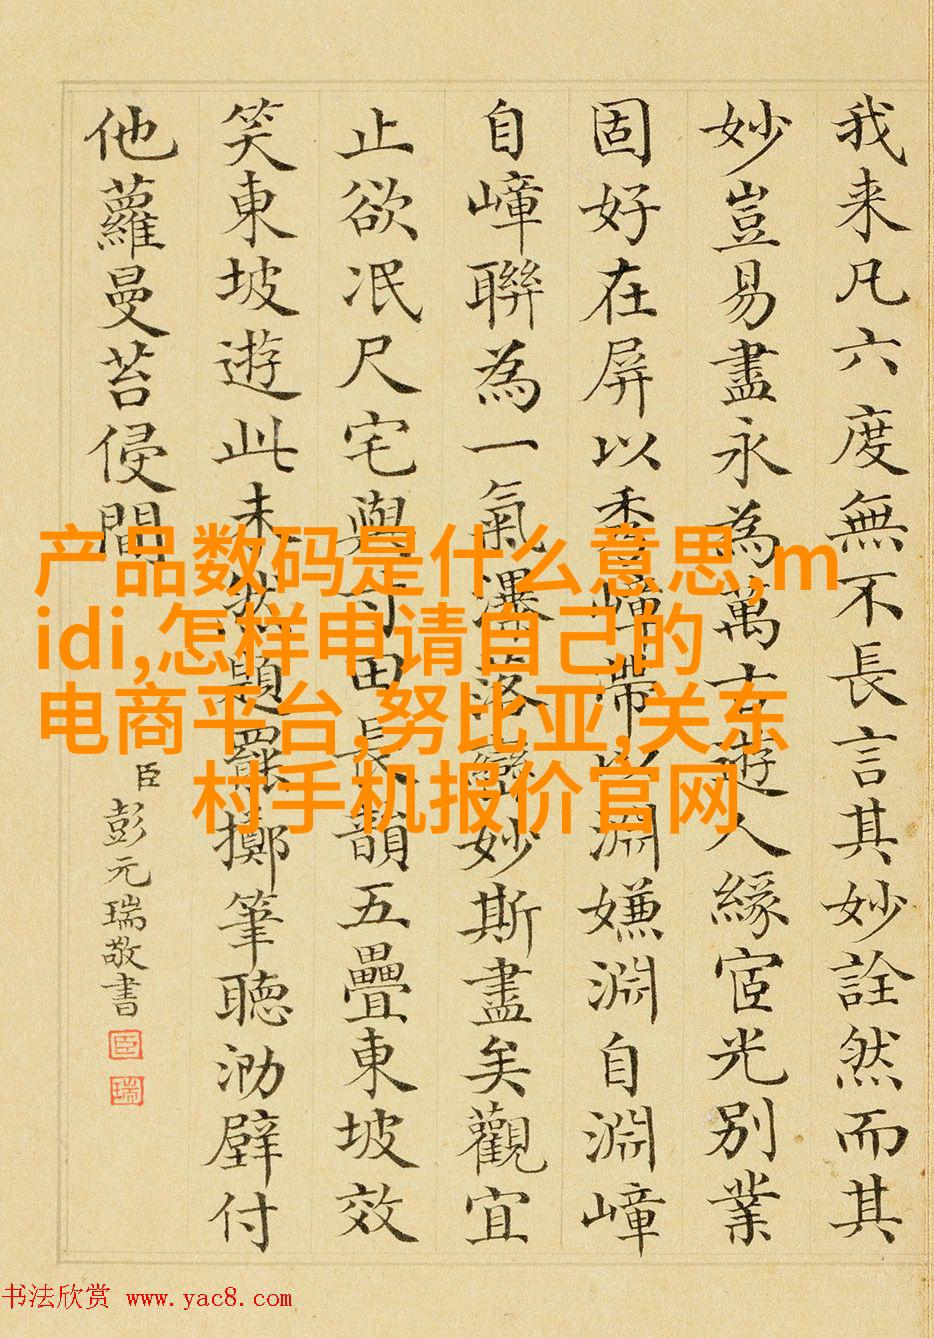 我来凡六度無不長言其妙詮然而其
妙豈易盡永為萬古遊人緣宧光別業
固好在屏以秀嶂帶以淵嫌淵自淵嶂
自嶂聯為一氣瀑落巒妙斯盡矣觀宜
止欲冺尺宅與寸田長韻五疊東坡效
笑東坡遊此未然題罷擲筆聽泐壁付
他蘿曼苔侵間
臣彭元瑞敬書
臣
瑞
产品数码是什么意思,m
idi,怎样申请自己的
电商平台,努比亚,关东
村手机报价官网
书法欣赏 www.yac8.com